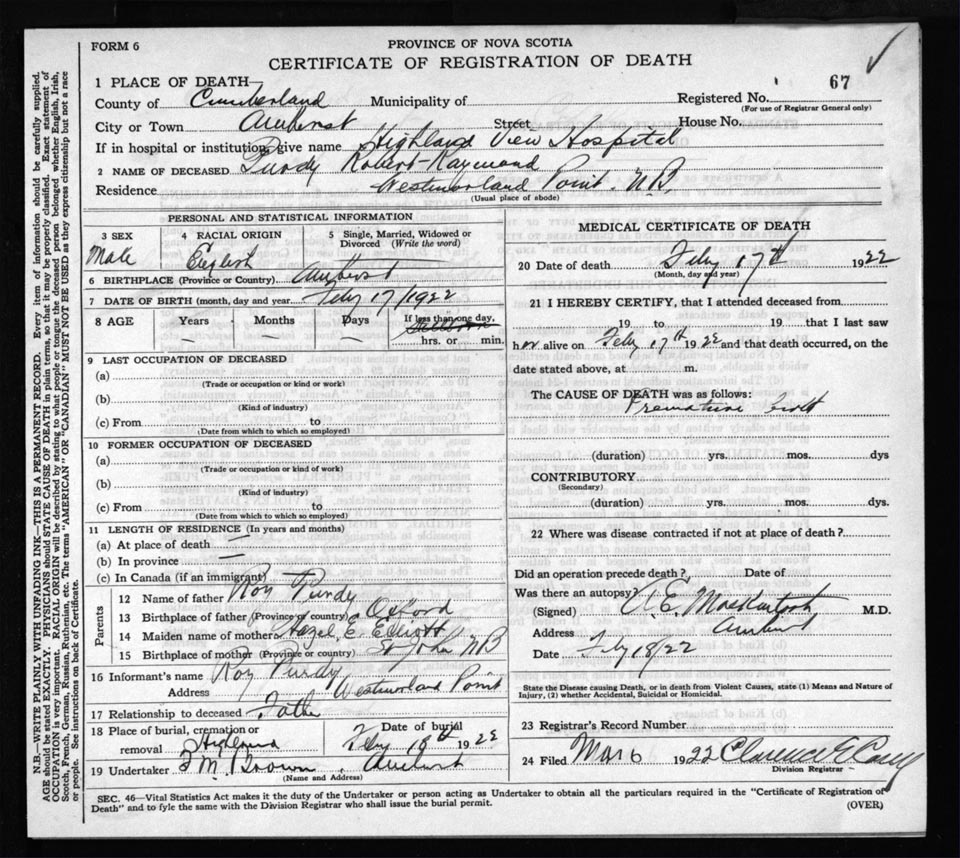 FORM 6
PROVINCE OF NOVA SCOTIA
CERTIFICATE OF REGISTRATION OF DEATH
67
1 PLACE OF DEATH—
County of Cumberland Municipality of Registered No.
(For use of Registrar General only)
City or Town Amherst Street House No.
If in hospital or institution, give name Highland View Hospital
2 NAME OF DECEASED Purdy Robert Raymond
Residence Westmorland Point N.B.
(Usual place of abode)
PERSONAL AND STATISTICAL INFORMATION
3 SEX 4 RACIAL ORIGIN 5 Single, Married, Widowed or Divorced (Write the word)
Male English
6 BIRTHPLACE (Province or Country) Amherst
7 DATE OF BIRTH (month, day and year) Feby 17/1922
8 AGE Years Months Days If less than one day,
— — — Stillborn
hrs. or min.
9 LAST OCCUPATION OF DECEASED
(a)
(Trade or occupation or kind of work)
(b)
(Kind of industry)
(c) From to
(Date from which to which so employed)
10 FORMER OCCUPATION OF DECEASED
(a)
(Trade or occupation or kind of work)
(b)
(Kind of industry)
(c) From to
(Date from which to which so employed)
11 LENGTH OF RESIDENCE (In years and months)
(a) At place of death —
(b) In province —
(c) In Canada (if an immigrant)
Parents
12 Name of father Roy Purdy
13 Birthplace of father (Province or country) Oxford
14 Maiden name of mother Hazel E. Elliott
15 Birthplace of mother (Province or country) St John NB
16 Informant's name Roy Purdy
Address Westmorland Point
17 Relationship to deceased Father
18 Place of burial, cremation or removal Highland Date of burial Feby 18th 1922
19 Undertaker Brown Amherst
(Name and Address)
MEDICAL CERTIFICATE OF DEATH
20 Date of death Feby 17th 1922
(Month, day and year)
21 I HEREBY CERTIFY, that I attended deceased from
19 to 19 that I last saw
h alive on Feby 17th 1922 and that death occurred, on the
date stated above, at m.
The CAUSE OF DEATH was as follows:
Premature birth
(duration) yrs. mos. dys
CONTRIBUTORY
(Secondary)
(duration) yrs. mos. dys.
22 Where was disease contracted if not at place of death?
Did an operation precede death? Date of
Was there an autopsy?
(Signed) E. MacKintosh M.D.
Address Amherst
Date Feby 18/22
State the Disease causing Death, or in death from Violent Causes, state (1) Means and Nature of Injury, (2) whether Accidental, Suicidal or Homicidal.
23 Registrar's Record Number
24 Filed Mar 6 1922 Clarence E Casey
Division Registrar
SEC. 46—Vital Statistics Act makes it the duty of the Undertaker or person acting as Undertaker to obtain all the particulars required in the "Certificate of Registration of
Death" and to fyle the same with the Division Registrar who shall issue the burial permit. (OVER)
N.B.—WRITE PLAINLY WITH UNFADING INK—THIS IS A PERMANENT RECORD. Every item of information should be carefully supplied.
AGE should be stated EXACTLY. PHYSICIANS should STATE CAUSE OF DEATH in plain terms, so that it may be properly classified. Exact statement of
OCCUPATION is very important. RACIAL ORIGIN will be described by stating to what people or tongue the deceased person belonged whether English, Irish,
Scotch, French, German, Russian, Ruthenian, etc. The terms "AMERICAN" or "CANADIAN" MUST NOT BE USED as they express citizenship but not a race
or people. See instructions on back of Certificate.